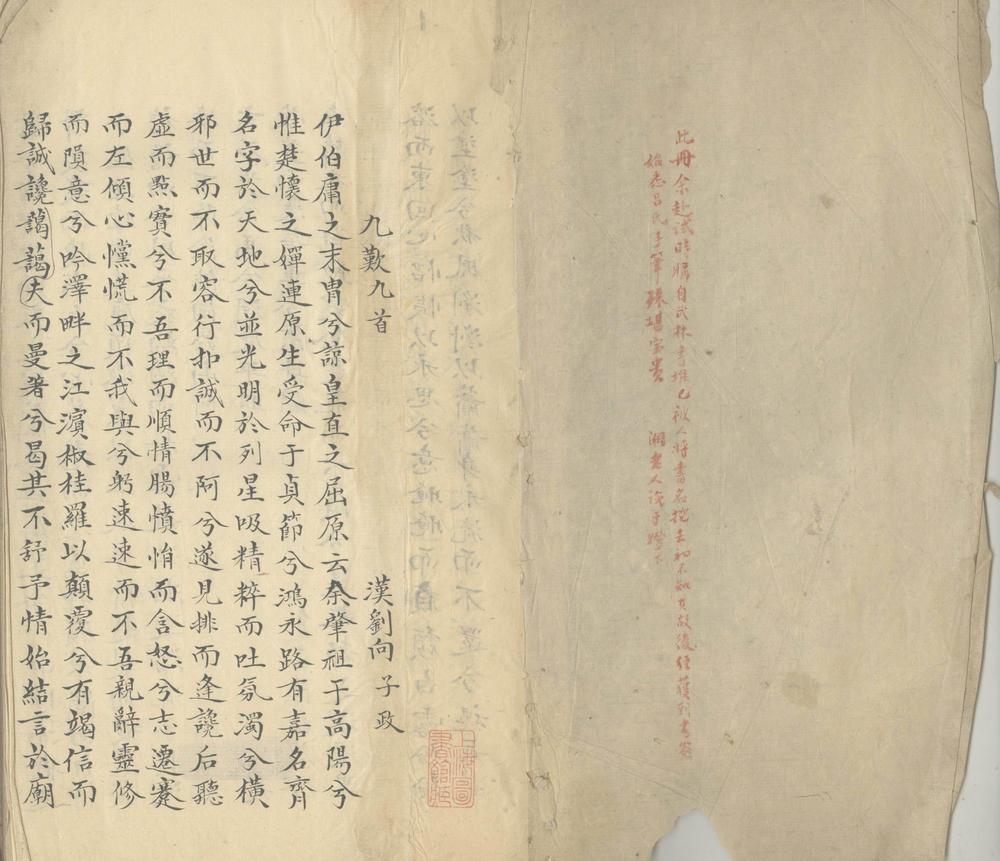 此冊余赴試時歸自武林書堆已被人將書名挖去初不知其故後經獲到書
始悉呂氏手筆殊堪寶貴 湘老人識于燈下
九歎九首
漢劉向子政
伊伯庸之末胄兮諒皇直之屈原云余肇祖于高陽兮
惟楚懷之嬋連原生受命于貞節兮鴻永路有嘉名齊
名字於天地兮並光明於列星吸精粹而吐氛濁兮橫
邪世而不取容行扣誠而不阿兮遂見排而逢讒后聽
虛而黜實兮不吾理而順情腸憤悁而含怒兮志遷蹇
而左傾心戃慌而不我與兮躬速速而不吾親辭靈修
而隕意兮吟澤畔之江濱椒桂羅以顛覆兮有竭信而
歸誠讒藹藹夫而曼著兮曷其不舒予情始結言於廟
上海圖書館藏